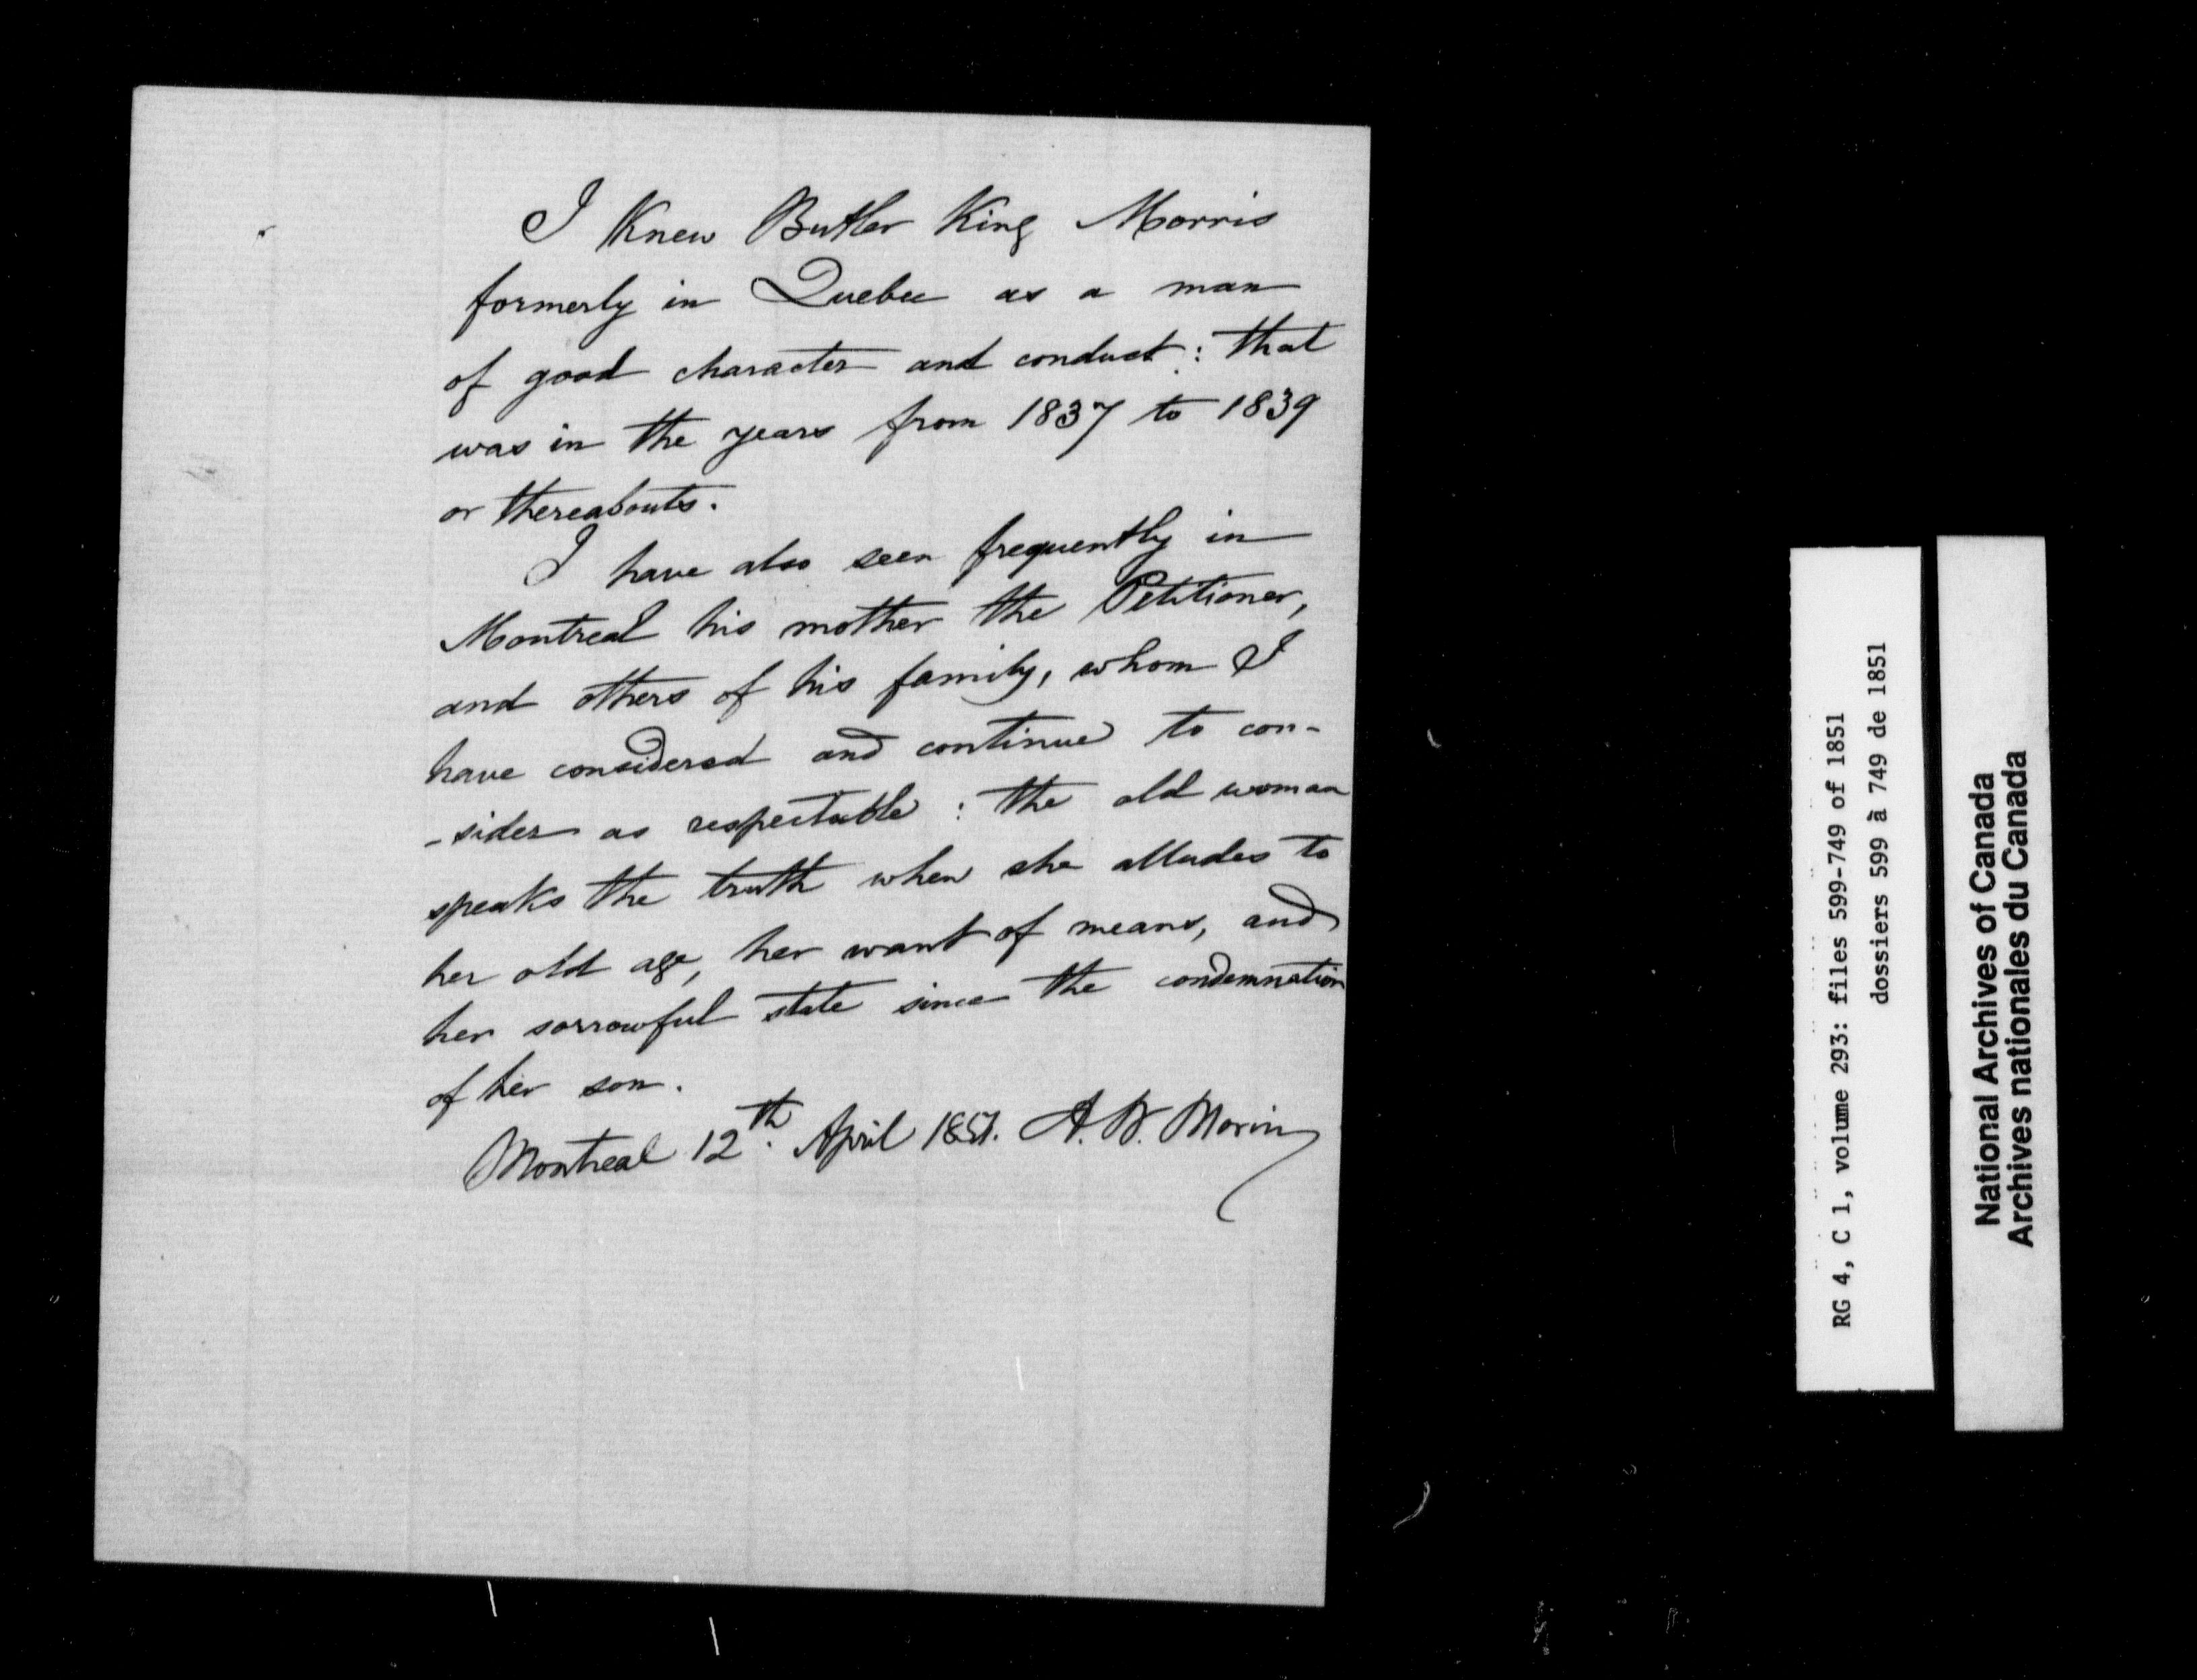 I Knew Butler King Morris
formerly in Quebec as a man
of good character and conduct : that
was in the years from 1837 to 1839
or thereabouts.
I have also seen frequently in
Montreal his mother the Petitioner,
and others of his family, whom I
have considered and continue to con-
-sider as respectable : the old woman
speaks the truth when she alludes to
her old age, her want of means, and
her sorrowful state since the condemnation
of her son.
Montreal 12th. April 1851. A. N. Morin
RG 4, C 1, volume 293: files 599-749 of 1851
dossiers 599 à 749 de 1851
National Archives of Canada
Archives nationales du Canada